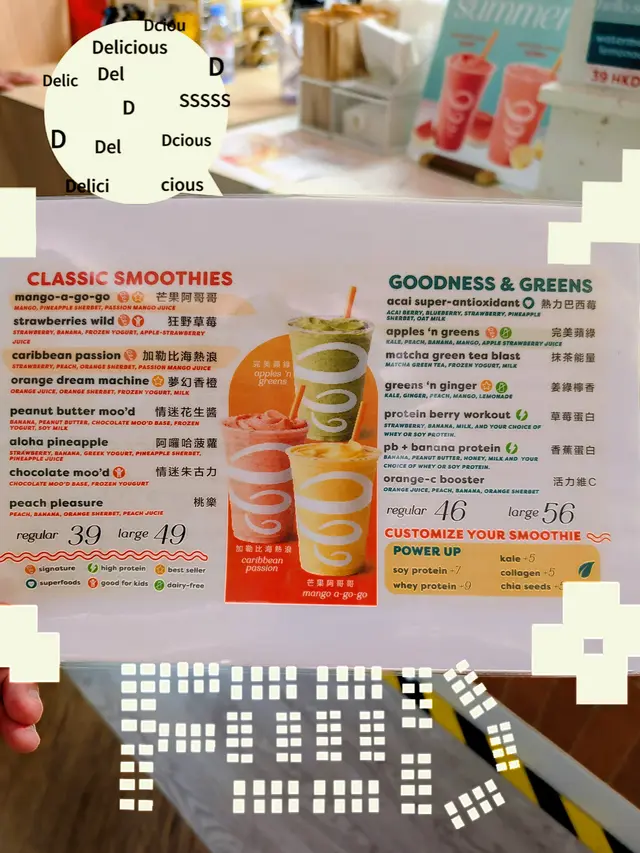 Dciou
Delicious
Delic
Del
D
D
SSSSS
D
Del
Dcious
Delici
cious
summer
39 HKD
CLASSIC SMOOTHIES
mango-a-go-go 芒果阿哥哥
MANGO, PINEAPPLE SHERBET, PASSION MANGO JUICE
strawberries wild 狂野草莓
STRAWBERRY, BANANA, FROZEN YOGURT, APPLE-STRAWBERRY
JUICE
caribbean passion 加勒比海熱浪
STRAWBERRY, PEACH, ORANGE SHERBET, PASSION MANGO JUICE
orange dream machine 夢幻香橙
ORANGE JUICE, ORANGE SHERBET, FROZEN YOGURT, MILK
peanut butter moo'd 情迷花生醬
BANANA, PEANUT BUTTER, CHOCOLATE MOO'D BASE, FROZEN
YOGURT, SOY MILK
aloha pineapple 阿囉哈菠蘿
STRAWBERRY, BANANA, GREEK YOGURT, PINEAPPLE SHERBET,
PINEAPPLE JUICE
chocolate moo'd 情迷朱古力
CHOCOLATE MOO'D BASE, FROZEN YOUGURT
peach pleasure 桃樂
PEACH, BANANA, ORANGE SHERBET, PEACH JUCIE
regular 39 large 49
signature high protein best seller
superfoods good for kids dairy-free
完美蘋綠
apples 'n
greens
加勒比海熱浪
caribbean
passion
芒果阿哥哥
mango a-go-go
GOODNESS & GREENS
acai super-antioxidant 熱力巴西莓
ACAI BERRY, BLUEBERRY, STRAWBERRY, PINEAPPLE
SHERBET, OAT MILK
apples 'n greens 完美蘋綠
KALE, PEACH, BANANA, MANGO, APPLE STRAWBERRY JUICE
matcha green tea blast 抹茶能量
MATCHA GREEN TEA, FROZEN YOGURT, MILK
greens 'n ginger 姜綠檸香
KALE, GINGER, PEACH, MANGO, LEMONADE
protein berry workout 草莓蛋白
STRAWBERRY, BANANA, MILK, AND YOUR CHOICE OF
WHEY OR SOY PROTEIN.
pb + banana protein 香蕉蛋白
BANANA, PEANUT BUTTER, HONEY, MILK AND YOUR
CHOICE OF WHEY OR SOY PROTEIN.
orange-c booster 活力維C
ORANGE JUICE, PEACH, BANANA, ORANGE SHERBET
regular 46 large 56
CUSTOMIZE YOUR SMOOTHIE
POWER UP
soy protein +7
whey protein +9
kale +5
collagen +5
chia seeds